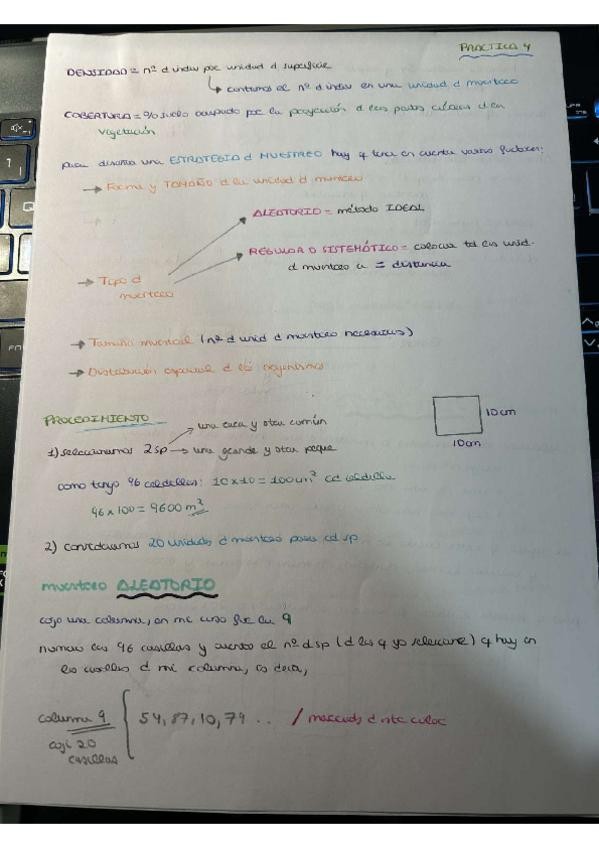 PRACTICA 4
DENSIDAD = nº d indiv por unidad d superficie
↳ contamos el nº d indiv en una unidad d muestreo
COBERTURA = % suelo ocupado por la proyección d las partes aéreas d la
vegetación
para diseñar una ESTRATEGIA d MUESTREO hay q tener en cuenta varios factores:
→ Forma y TAMAÑO d la unidad d muestreo
ALEATORIO = método IDEAL
REGULAR O SISTEMÁTICO = colocar td las unid.
d muestreo a = distancia
→ Tipo d
muestreo
→ Tamaño muestral (nº d unid d muestreo necesarias)
→ Distribución espacial d los organismos
PROCEDIMIENTO
una rara y otra común
10cm
1) seleccionamos 2 sp → una grande y otra peque
10cm
como tengo 96 casillas: 10 x 10 = 100 cm² cd casilla
96 x 100 = 9600 m²
2) consideramos 20 unidades d muestreo para cd sp
muestreo ALEATORIO
cojo una columna, en mi caso fue la 9
numero las 96 casillas y cuento el nº d sp (d las q yo seleccione) q hay en
las casillas d mi columna, es decir,
columna 9 { 54, 87, 10, 74 .. / marcadas d otro color
cojí 20
casillas